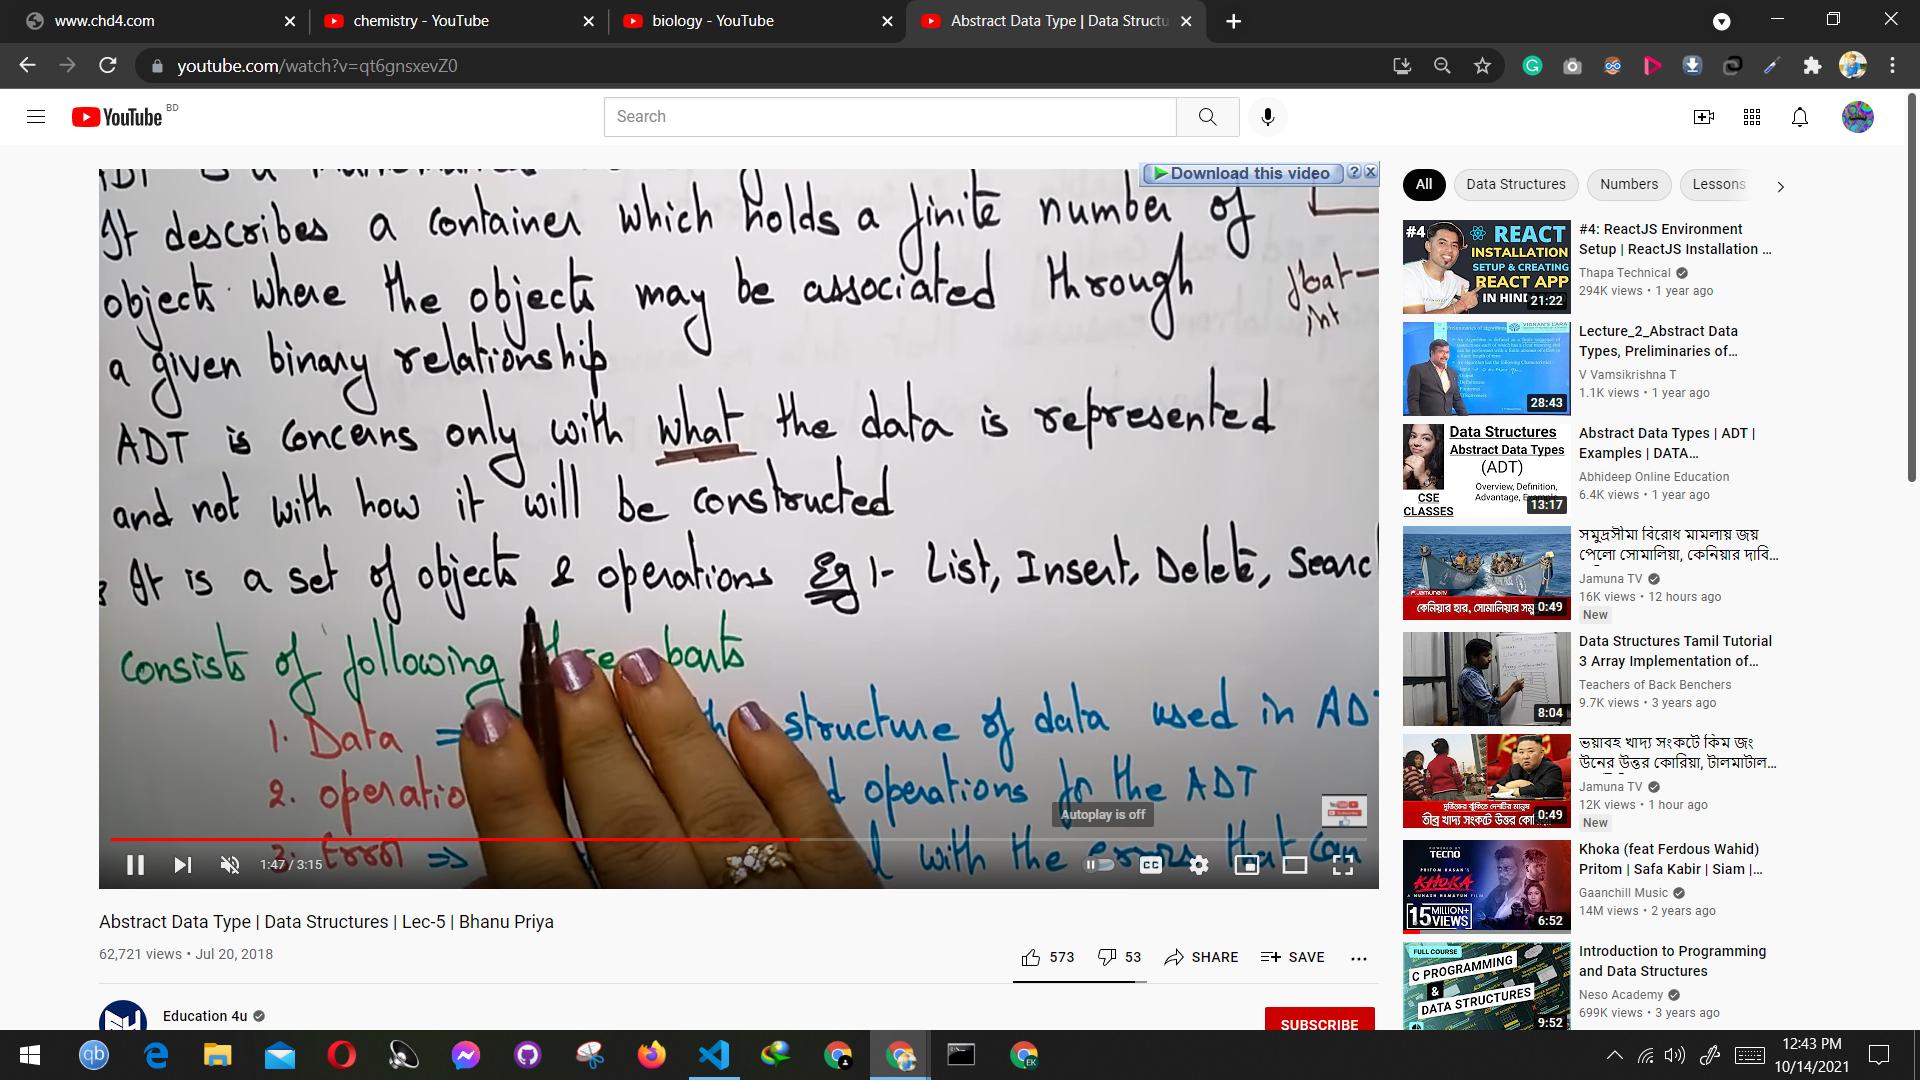 www.chd4.com
chemistry - YouTube
biology - YouTube
Abstract Data Type | Data Structu
youtube.com/watch?v=qt6gnsxevZ0
YouTube BD
Search
Download this video ? X
ADT is a
It describes a container which holds a finite number of
objects where the objects may be associated through
a given binary relationship
float
int
ADT is concerns only with what the data is represented
and not with how it will be constructed
It is a set of objects & operations Eg :- List, Insert, Delete, Searc
consists of following three parts
1. Data => structure of data used in AD
2. operatio operations for the ADT
3. Error => with the errors that can
Autoplay is off
1:47 / 3:15
CC
Abstract Data Type | Data Structures | Lec-5 | Bhanu Priya
62,721 views • Jul 20, 2018
573
53
SHARE
SAVE
Education 4u
SUBSCRIBE
All
Data Structures
Numbers
Lessons
#4 REACT
INSTALLATION
SETUP & CREATING
REACT APP
IN HIN
21:22
#4: ReactJS Environment
Setup | ReactJS Installation ...
Thapa Technical
294K views • 1 year ago
28:43
Lecture_2_Abstract Data
Types, Preliminaries of...
V Vamsikrishna T
1.1K views • 1 year ago
Data Structures
Abstract Data Types
(ADT)
Overview, Definition,
Advantage, Example
CSE
CLASSES
13:17
Abstract Data Types | ADT |
Examples | DATA...
Abhideep Online Education
6.4K views • 1 year ago
কেনিয়ার হার, সোমালিয়ার সমু
0:49
সমুদ্রসীমা বিরোধ মামলায় জয়
পেলো সোমালিয়া, কেনিয়ার দাবি...
Jamuna TV
16K views • 12 hours ago
New
8:04
Data Structures Tamil Tutorial
3 Array Implementation of...
Teachers of Back Benchers
9.7K views • 3 years ago
তীব্র খাদ্য সংকটে উত্তর কো
0:49
ভয়াবহ খাদ্য সংকটে কিম জং
উনের উত্তর কোরিয়া, টালমাটাল...
Jamuna TV
12K views • 1 hour ago
New
POWERED BY
TECNO
PRITOM HASAN'S
KHOKA
15 MILLION+
VIEWS
6:52
Khoka (feat Ferdous Wahid)
Pritom | Safa Kabir | Siam |...
Gaanchill Music
14M views • 2 years ago
FULL COURSE
C PROGRAMMING
&
DATA STRUCTURES
9:52
Introduction to Programming
and Data Structures
Neso Academy
699K views • 3 years ago
qb
EK
12:43 PM
10/14/2021